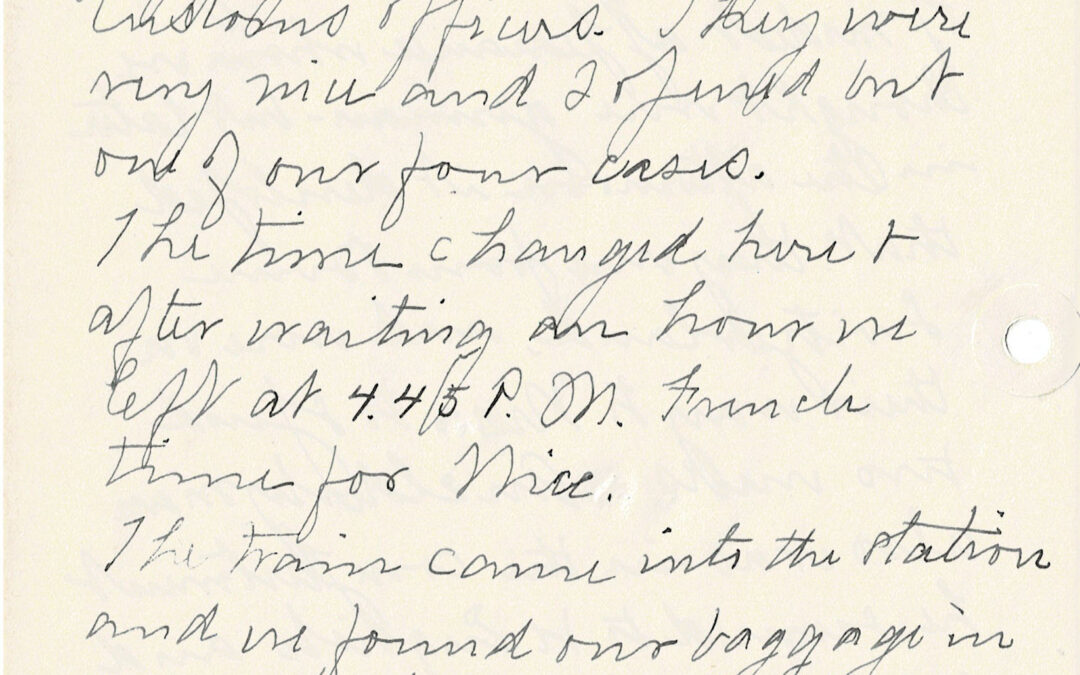 Customs officers. They were
very nice and I opened but
one of our four cases.
The time changed here &
after waiting an hour we
left at 4.45 P.M. French
time for Nice.
The train came into the station
and we found our baggage in